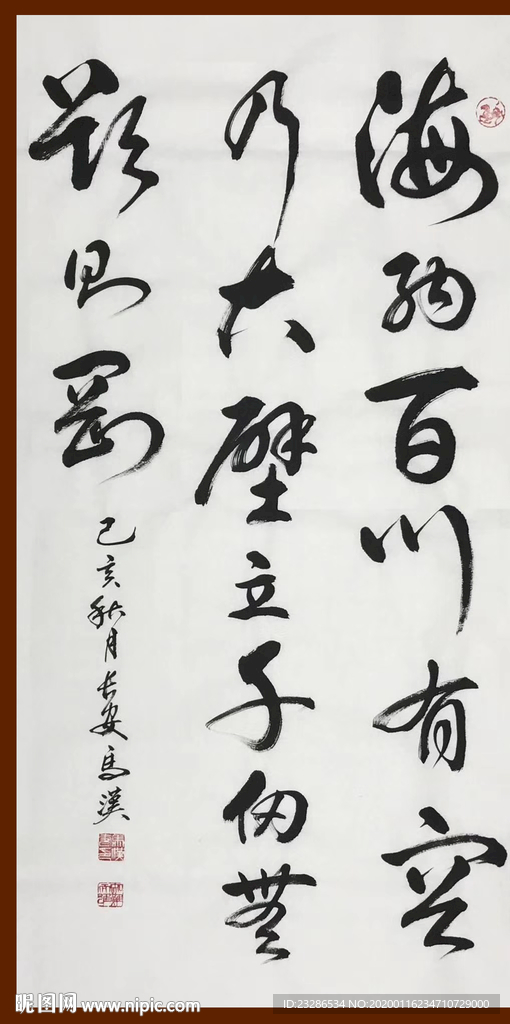 海納百川有容
乃大壁立千仞無
欲則剛
己亥秋月長安馬漢
昵图网 www.nipic.com
ID:23286534 NO:20200116234710729000